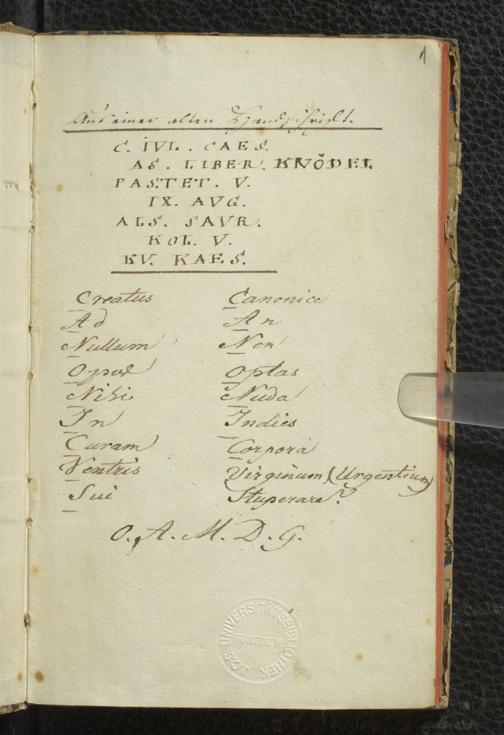 1
Aus einer alten Handschrift.
C. IVL. CAES.
AS. LIBER. KNÖDEL
PASTET. V.
IX. AVG.
ALS. SAVR.
KOL. V.
KV. KAES.
Creatus Canonice
Ad An
Nullum Non
Opus Optas
Nisi Nuda
In Indies
Curam Corpora
Ventris Virginum (Urgentium)
Sui Stuperare?
O. A. M. D. G.
UNIVERSITÄTSBIBLIOTHEK
J.C.S.
FRANKFURT